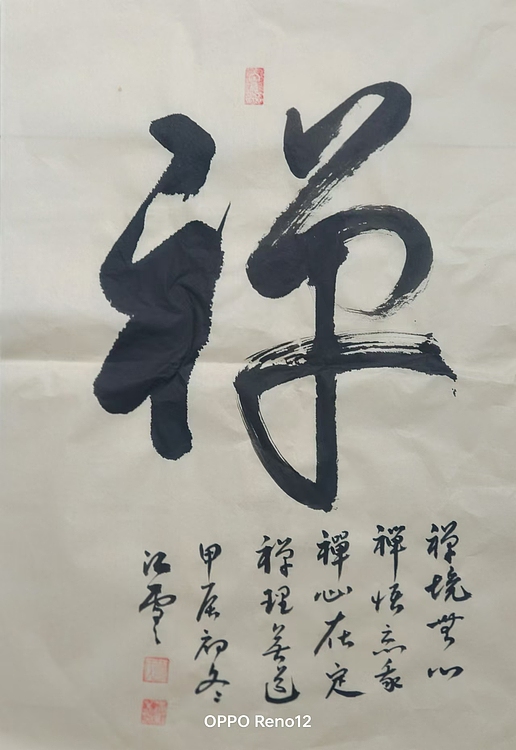 禅
禅境無心
禪悟忘我
禪心在定
禅理善道
甲辰初冬
江
OPPO Reno12